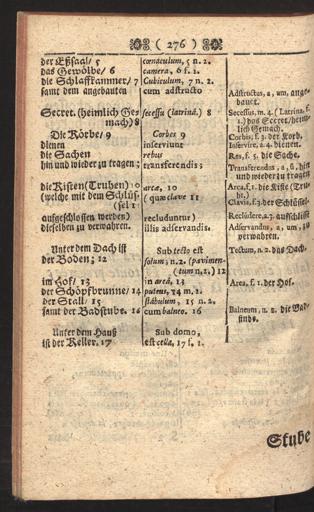 ( 276 )
der Eßsaal/ 5
das Gewölbe/ 6
die Schlaffkammer/ 7
samt dem angebauten
Secret. (heimlich Ge-
mach) 8
Die Körbe/ 9
dienen
die Sachen
hin und wieder zu tragen;
die Kisten (Truhen) 10
(welche mit dem Schlüs-
(sel 11
aufgeschlossen werden)
dieselben zu verwahren.
Unter dem Dach ist
der Boden; 12
im Hof/ 13
der Schöpfbrunne/ 14
der Stall/ 15
samt der Badstube. 16
Unter dem Hauß
ist der Keller. 17
cœnaculum, 5 n. 2.
camera, 6 f. 1.
Cubiculum, 7 n. 2.
cum adstructo
secessu (latrinâ.) 8
Corbes 9
inserviunt
rebus
transferendis;
arcæ, 10
( quæ clave 11
recluduntur)
illis adservandis.
Sub tecto est
solum; n. 2. (pavimen-
(tum n. 2.) 12
in areâ, 13
puteus, 14 m. 2.
stabulum, 15 n. 2.
cum balneo. 16
Sub domo,
est cella, 17 f. 1.
Adstructus, a, um, ange-
bauet.
Secessus, m. 4. (Latrina, f.
1.) das Secret/heim-
lich Gemach.
Corbis, f. 3. der Korb.
Inservire, a. 4. dienen.
Res, f. 5. die Sache.
Transferendus, a, um, hin
und wieder zu tragen
Arca, f. 1. die Kiste (Tru-
he.)
Clavis, f. 3. der Schlüssel.
Recludere, a. 3. aufschließ
Adservandus, a, um, zu
verwahren.
Tectum, n. 2. das Dach.
Area, f. 1. der Hof.
Balneum, n. 2. die Bad-
stube.
Stube